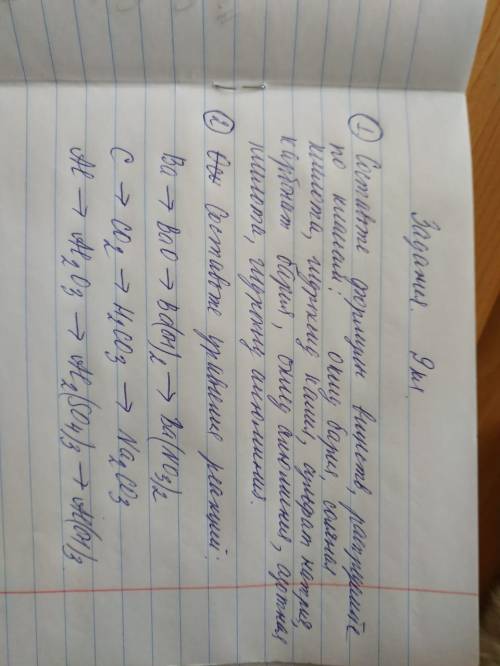 Задания. 9 кл.
① Составьте формулы веществ, распределите
по классам: оксид бария, соляная
кислота, гидроксид калия, сульфат натрия,
карбонат бария, оксид алюминия, азотная
кислота, гидроксид алюминия.
② Составьте уравнение реакций:
Ba → BaO → Ba(OH)₂ → Ba(NO₃)₂
C → CO₂ → H₂CO₃ → Na₂CO₃
Al → Al₂O₃ → Al₂(SO₄)₃ → Al(OH)₃